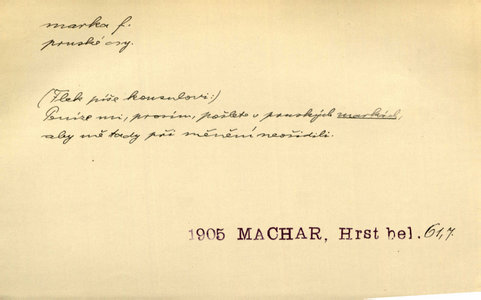 marka f.
pruské osy.
(Flek píše konsulovi:)
Peníze mi, prosím, pošlete v pruských markách,
aby mě tady při měnění neošidili.
1905 MACHAR, Hrst bel. 61,7.